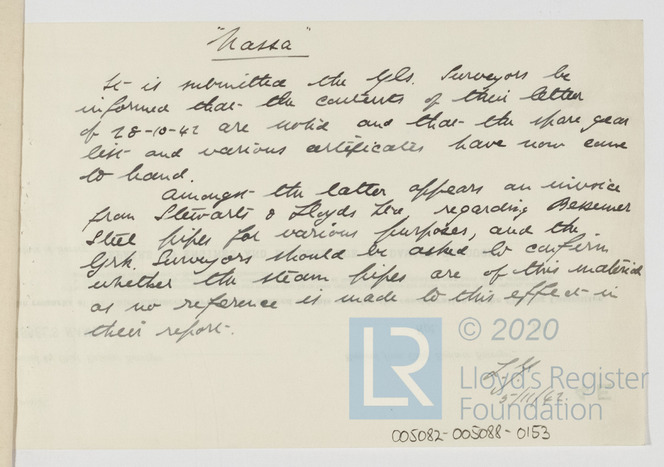 "Nassa"
It is submitted the Gls. Surveyors be
informed that the contents of their letter
of 28-10-42 are noted and that the spare gear
list and various certificates have now come
to hand.
Amongst the latter appears an invoice
from Stewarts & Lloyds Ltd. regarding Bessemer
Steel pipes for various purposes, and the
Grk. Surveyors should be asked to confirm
whether the steam pipes are of this material
as no reference is made to this effect in
their report.
LR
© 2020
Lloyd's Register
Foundation
5/11/42.
005082-005088-0153